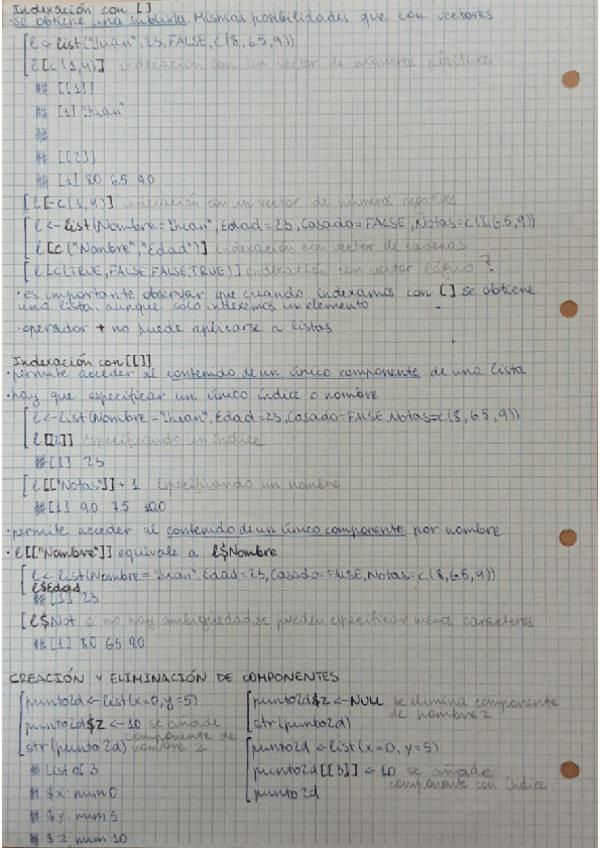 Indexación con []
·se obtiene una sublista. Mismas posibilidades que con vectores
l <- list("Juan", 23, FALSE, c(8, 6.5, 9))
l[c(1,4)] indexación con un vector de números positivos
## [[1]]
## [1] "Juan"
##
## [[2]]
## [1] 8.0 6.5 9.0
l[-c(1,4)] indexación con un vector de números negativos
l <- list(Nombre="Juan", Edad=23, Casado=FALSE, Notas=c(8,6.5,9))
l[c("Nombre","Edad")] indexación con vector de cadenas
l[c(TRUE,FALSE,FALSE,TRUE)] indexación con vector lógico ?
·es importante observar que cuando indexamos con [] se obtiene
una lista, aunque solo indexemos un elemento
·operador + no puede aplicarse a listas
Indexación con [[]]
·permite acceder al contenido de un único componente de una lista
·hay que especificar un único índice o nombre
l <- list(Nombre="Juan", Edad=23, Casado=FALSE, Notas=c(8,6.5,9))
l[[2]] especificando un índice
## [1] 23
l[["Notas"]]+1 especificando un nombre
## [1] 9.0 7.5 10.0
·permite acceder al contenido de un único componente por nombre
·l[["Nombre"]] equivale a l$Nombre
l <- list(Nombre="Juan", Edad=23, Casado=FALSE, Notas=c(8,6.5,9))
l$Edad
## [1] 23
l$Not si no hay ambigüedad, se pueden especificar menos caracteres
## [1] 8.0 6.5 9.0
CREACIÓN Y ELIMINACIÓN DE COMPONENTES
punto2d <- list(x=0, y=5)
punto2d$z <- 10 se añade
componente de
str(punto2d) nombre z
# List of 3
## $x: num 0
## $y: num 5
## $z: num 10
punto2d$z <- NULL se elimina componente
de nombre z
str(punto2d)
punto2d <- list(x=0, y=5)
punto2d[[3]] <- 10 se añade
componente con índice
punto2d